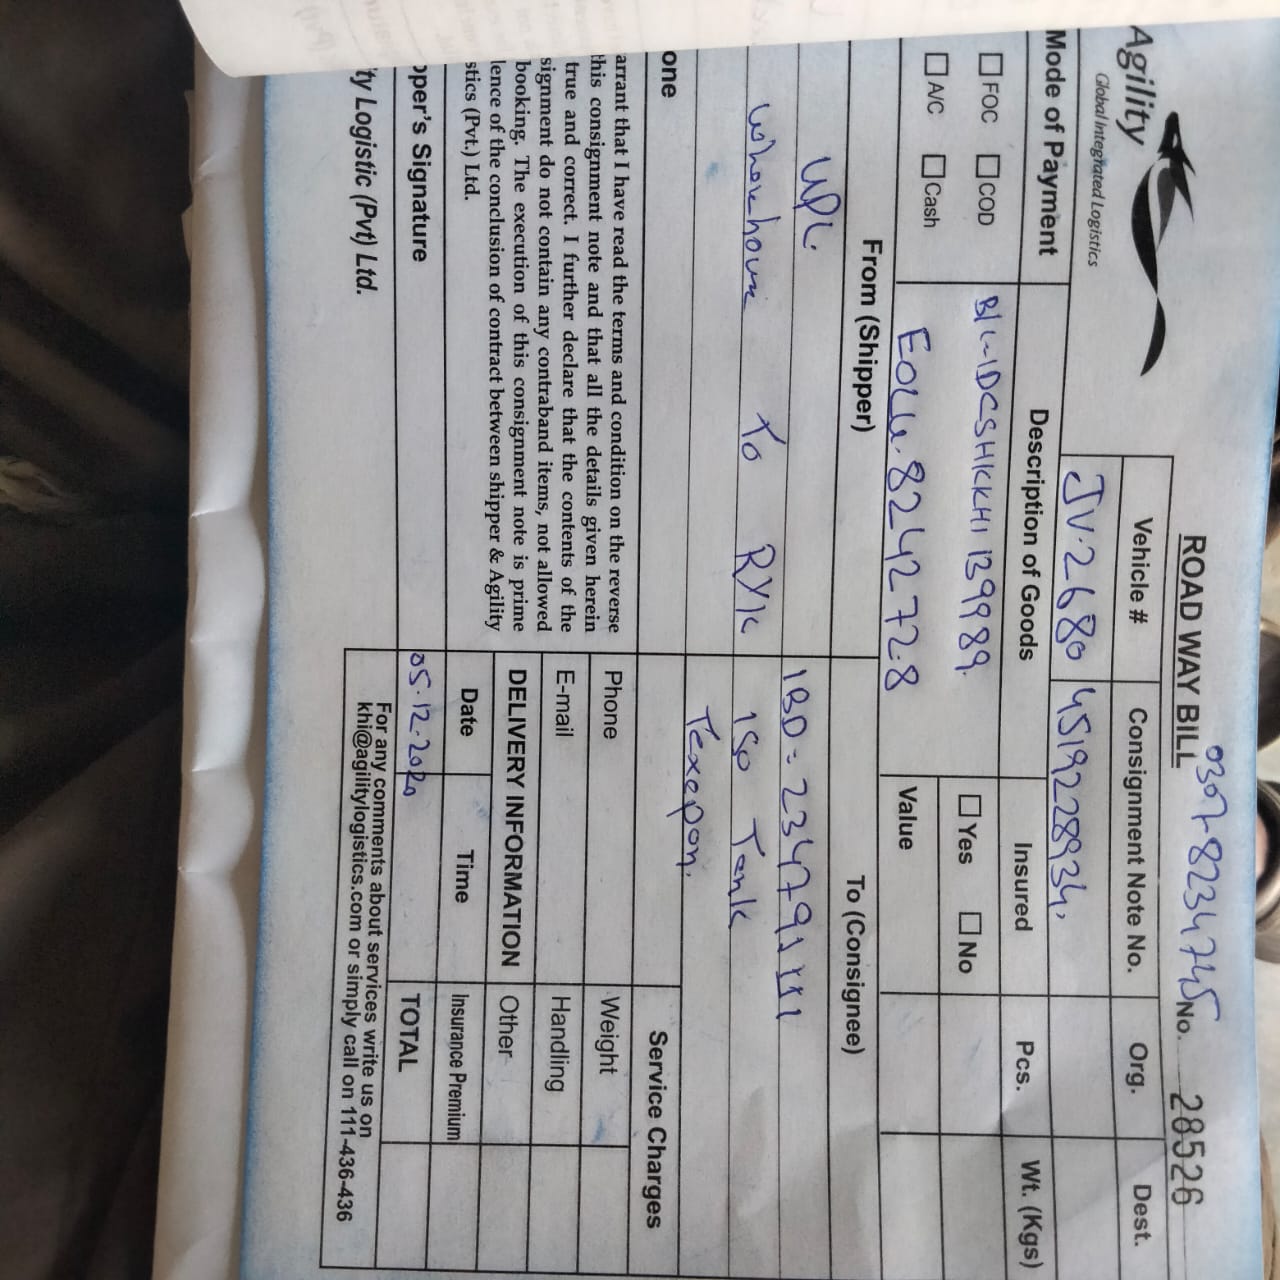 Agility
Global Integrated Logistics
ROAD WAY BILL
0307-8234745
No. 28526
Vehicle #
Consignment Note No.
Org.
Dest.
JV-2680
4519228934
Mode of Payment
Description of Goods
Insured
Pcs.
Wt. (Kgs)
FOC
COD
B/L-IDCSHKKHI 139989
Yes
No
A/C
Cash
EOLU.8242728
Value
From (Shipper)
To (Consignee)
UPL
IBD = 234791111
To RYK
ISO Tank
Texapon.
one
Service Charges
arrant that I have read the terms and condition on the reverse
this consignment note and that all the details given herein
true and correct. I further declare that the contents of the
signment do not contain any contraband items, not allowed
booking. The execution of this consignment note is prime
lence of the conclusion of contract between shipper & Agility
stics (Pvt.) Ltd.
Phone
Weight
E-mail
Handling
DELIVERY INFORMATION
Other
Date
Time
Insurance Premium
pper's Signature
05-12-2020
TOTAL
ty Logistic (Pvt) Ltd.
For any comments about services write us on
khi@agilitylogistics.com or simply call on 111-436-436